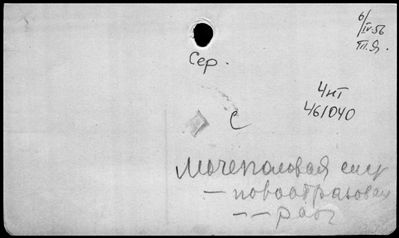 6/
IV-56
Тп. Я.
Сер.
4нт
461040
С
Мочеполовая сис
— новообразован
— — рабо